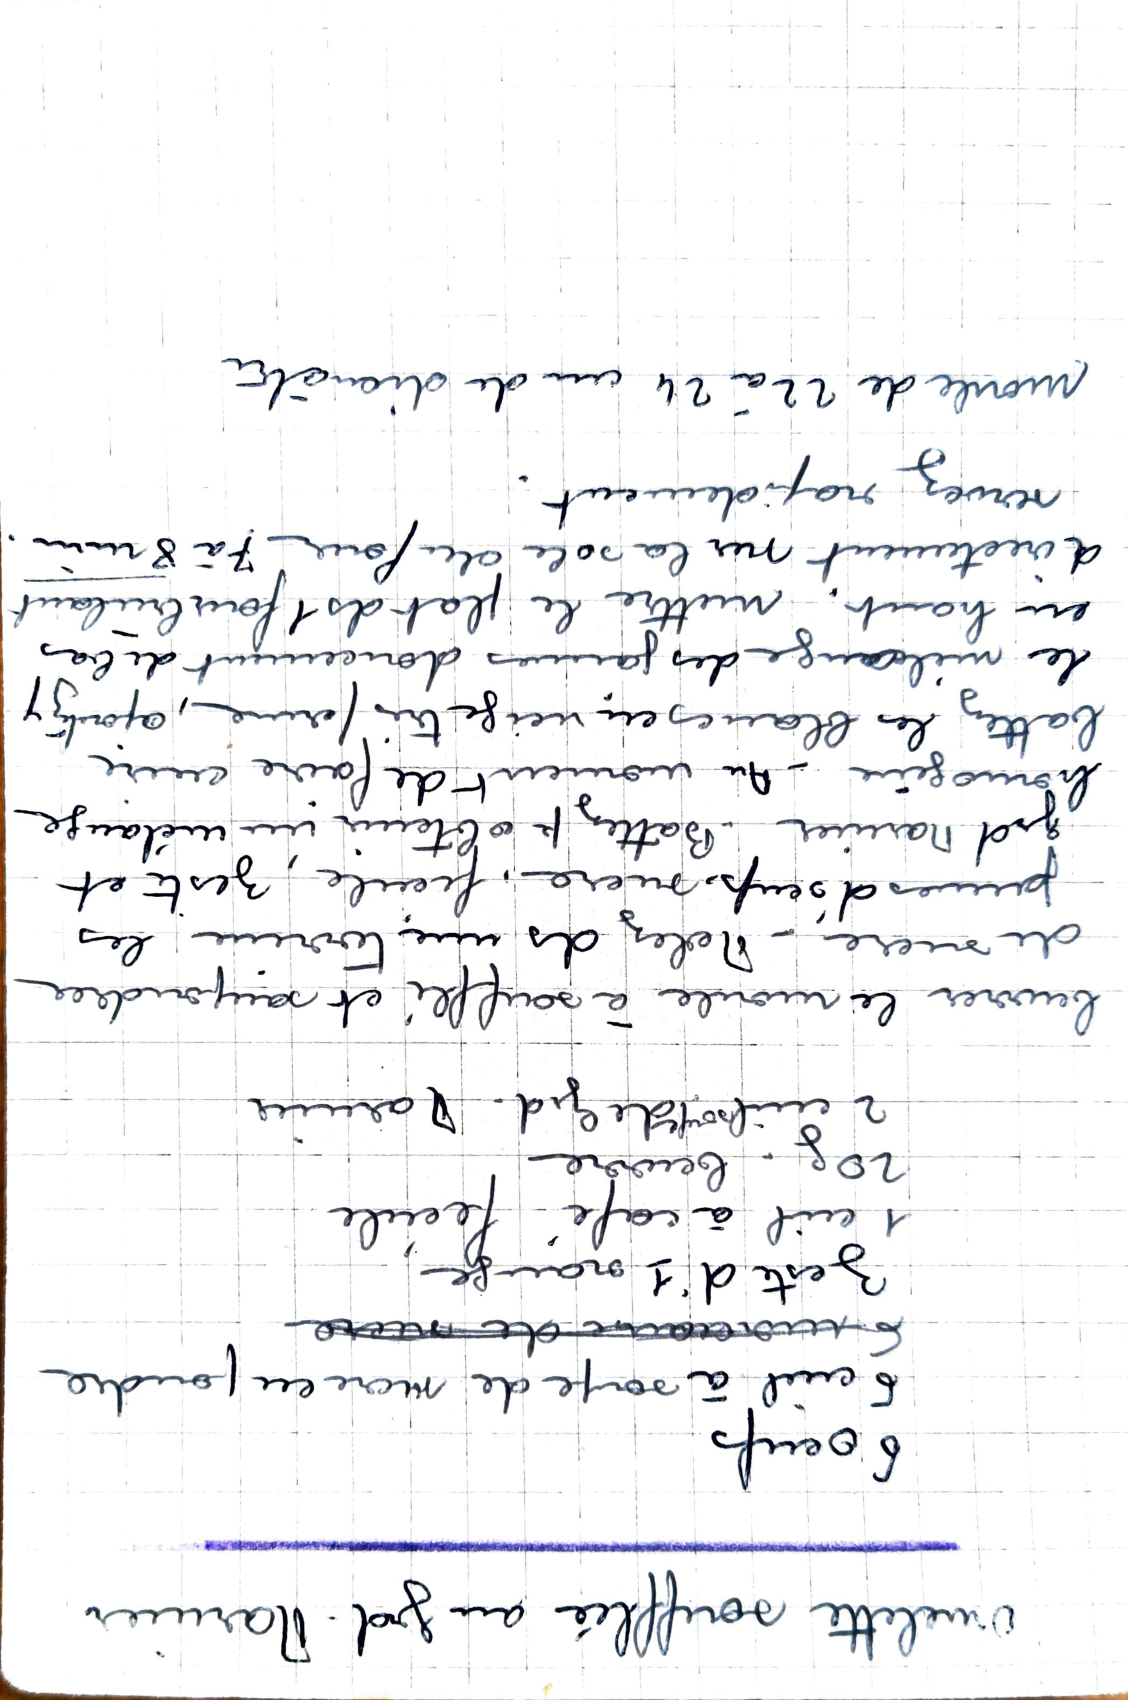 omelette soufflée au grd. Marnier
6 oeufs
6 cuil à soupe de sucre en poudre
6 morceaux de sucre
Zeste d'1 orange
1 cuil à café fécule
20 g. beurre
2 cuil soupe de grd. Marnier
beurrer le moule à soufflé et saupoudrer
de sucre - Mélez ds une terrine les
jaunes d'oeufs, sucre, fécule, zeste et
grd Marnier. Battez p obtenir un mélange
homogène - Au moment de faire cuire
battez les blancs en neige très ferme, ajoutez y
le mélange des jaunes doucement de bas
en haut. mettre le plat ds 1 four brulant
directement sur la sole du four 7 à 8 min.
servez rapidement.
moule de 22 à 24 cm de diamètre